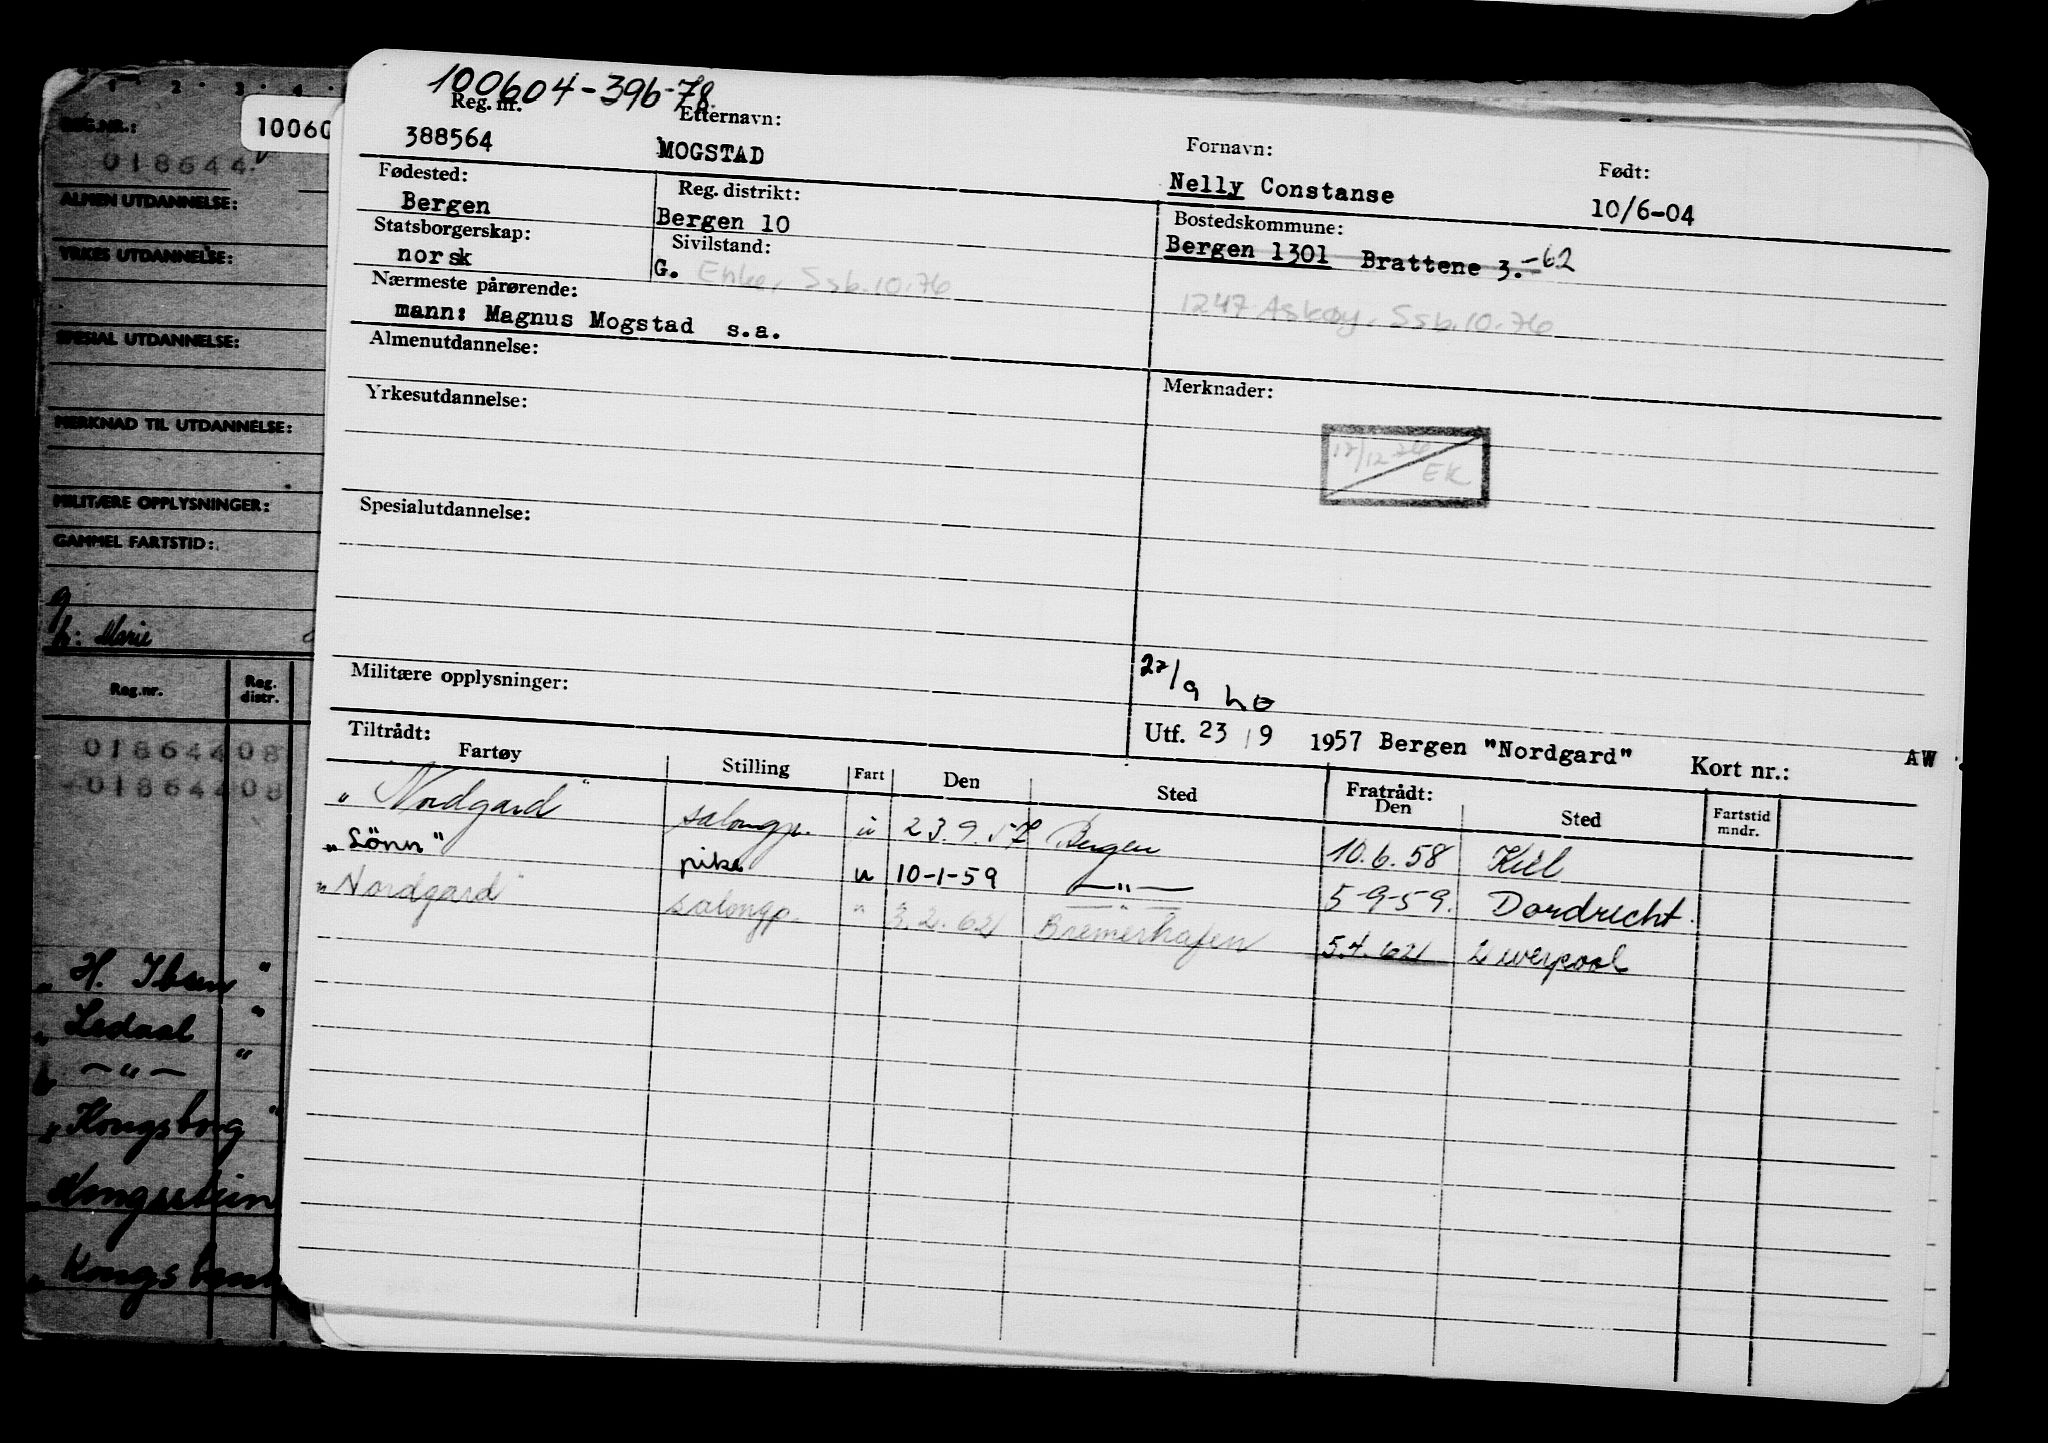 1 2 3 4
REG.NR.:
10060
018644
ALMEN UTDANNELSE:
YRKES UTDANNELSE:
SPESIAL UTDANNELSE:
MERKNAD TIL UTDANNELSE:
MILITÆRE OPPLYSNINGER:
GAMMEL FARTSTID:
g
h: Marie
Reg.nr. Reg. distr.
01864408
01864408
"H. Ibsen"
"Ledaal"
— " — "
"Kongsborg"
"Kongsstein
100604-396-78
Reg. nr. Etternavn: Fornavn: Født:
388564 MOGSTAD Nelly Constanse 10/6-04
Fødested: Reg. distrikt: Bostedskommune:
Bergen Bergen 10 Bergen 1301 Brattene 3. -62
Statsborgerskap: Sivilstand:
norsk G. Enke, Ssb.10.76 1247 Askøy, Ssb.10.76
Nærmeste pårørende:
mann: Magnus Mogstad s.a.
Almenutdannelse: Merknader:
Yrkesutdannelse:
17/12 EK
Spesialutdannelse:
Militære opplysninger:
27/9
Utf. 23/9 1957 Bergen "Nordgard" Kort nr.: AW
Tiltrådt: Fratrådt:
Fartøy Stilling Fart Den Sted Den Sted Fartstid mndr.
"Nordgard" salongp. u 23.9.57 Bergen 10.6.58 Kiel
"Lönn" pike u 10-1-59 —"— 5-9-59. Dordrecht.
"Nordgard" salongp. " 3.2.62 Bremerhafen 5.4.62 Liverpool